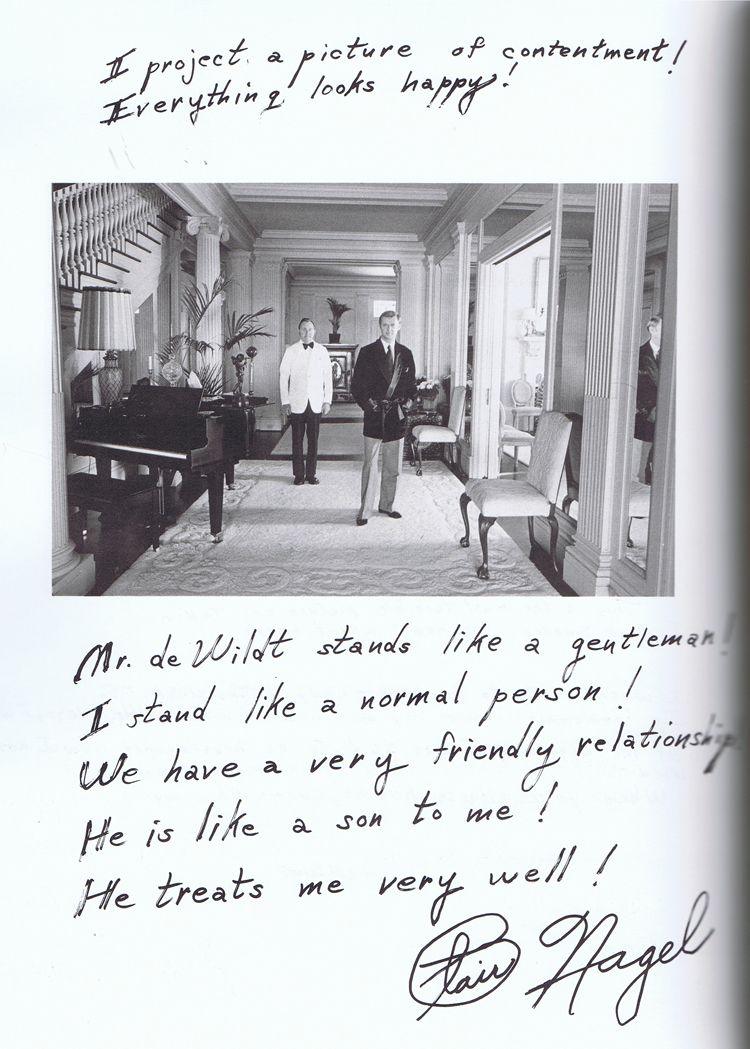 I project a picture of contentment!
Everything looks happy!
Mr. de Wildt stands like a gentleman!
I stand like a normal person!
We have a very friendly relationship
He is like a son to me!
He treats me very well!
Blair Nagel